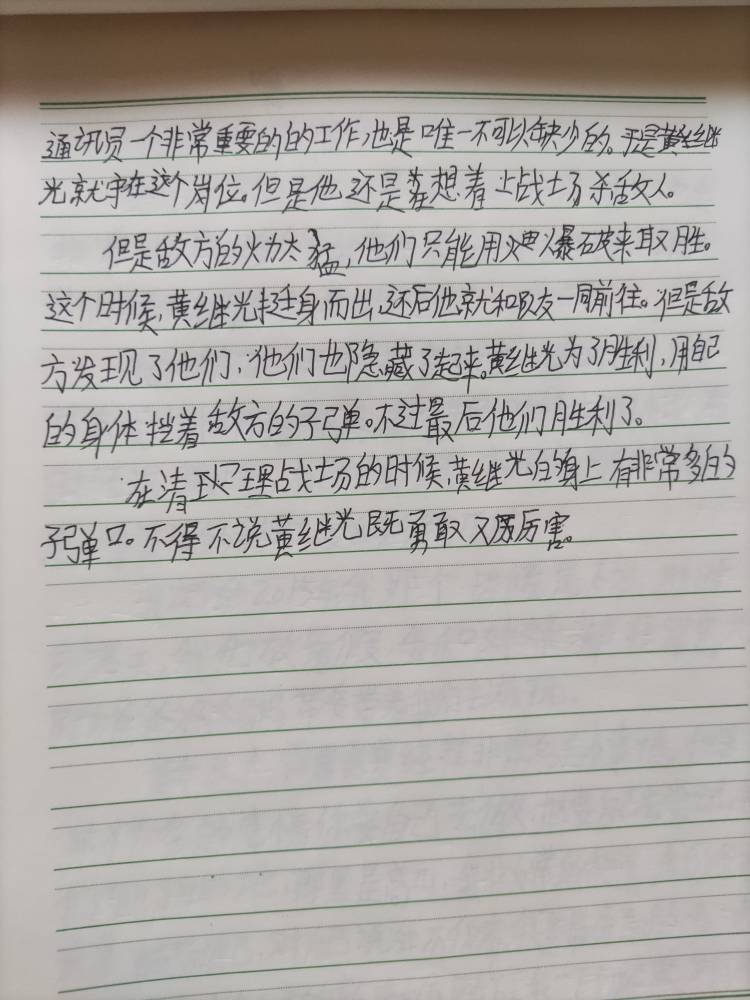 通讯员一个非常重要的的工作,也是唯一不可以缺少的。于是黄继
光就守在这个岗位。但是他还是在想着上战场杀敌人。
但是敌方的火力太猛,他们只能用爆破来取胜。
这个时候,黄继光挺身而出,还后他就和队友一同前往。但是敌
方发现了他们,他们也隐藏了起来。黄继光为了胜利,用自己
的身体挡着敌方的子弹。不过最后他们胜利了。
在清理战场的时候,黄继光的身上有非常多的
子弹口。不得不说黄继光既勇敢又厉害。